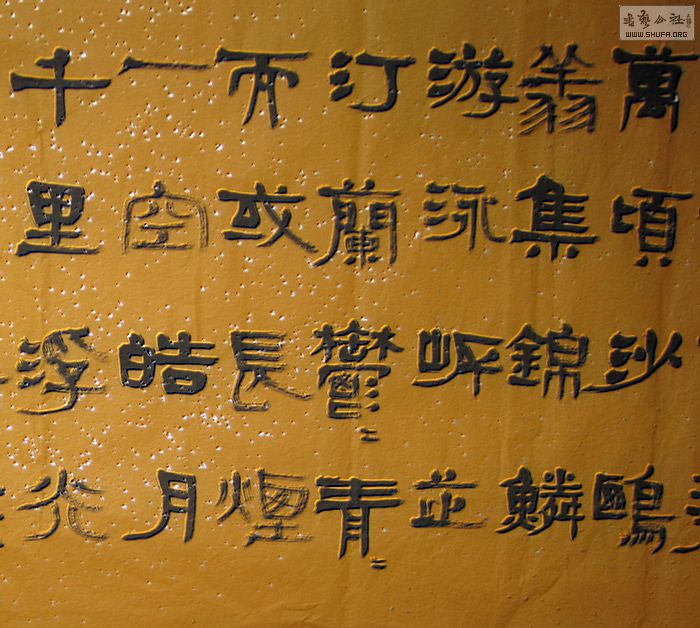 萬頃沙鷗
翔集錦鱗
游泳岸芷
汀蘭鬱〻青〻
而或長煙
一空皓月
千里浮光
書藝公社
WWW.SHUFA.ORG